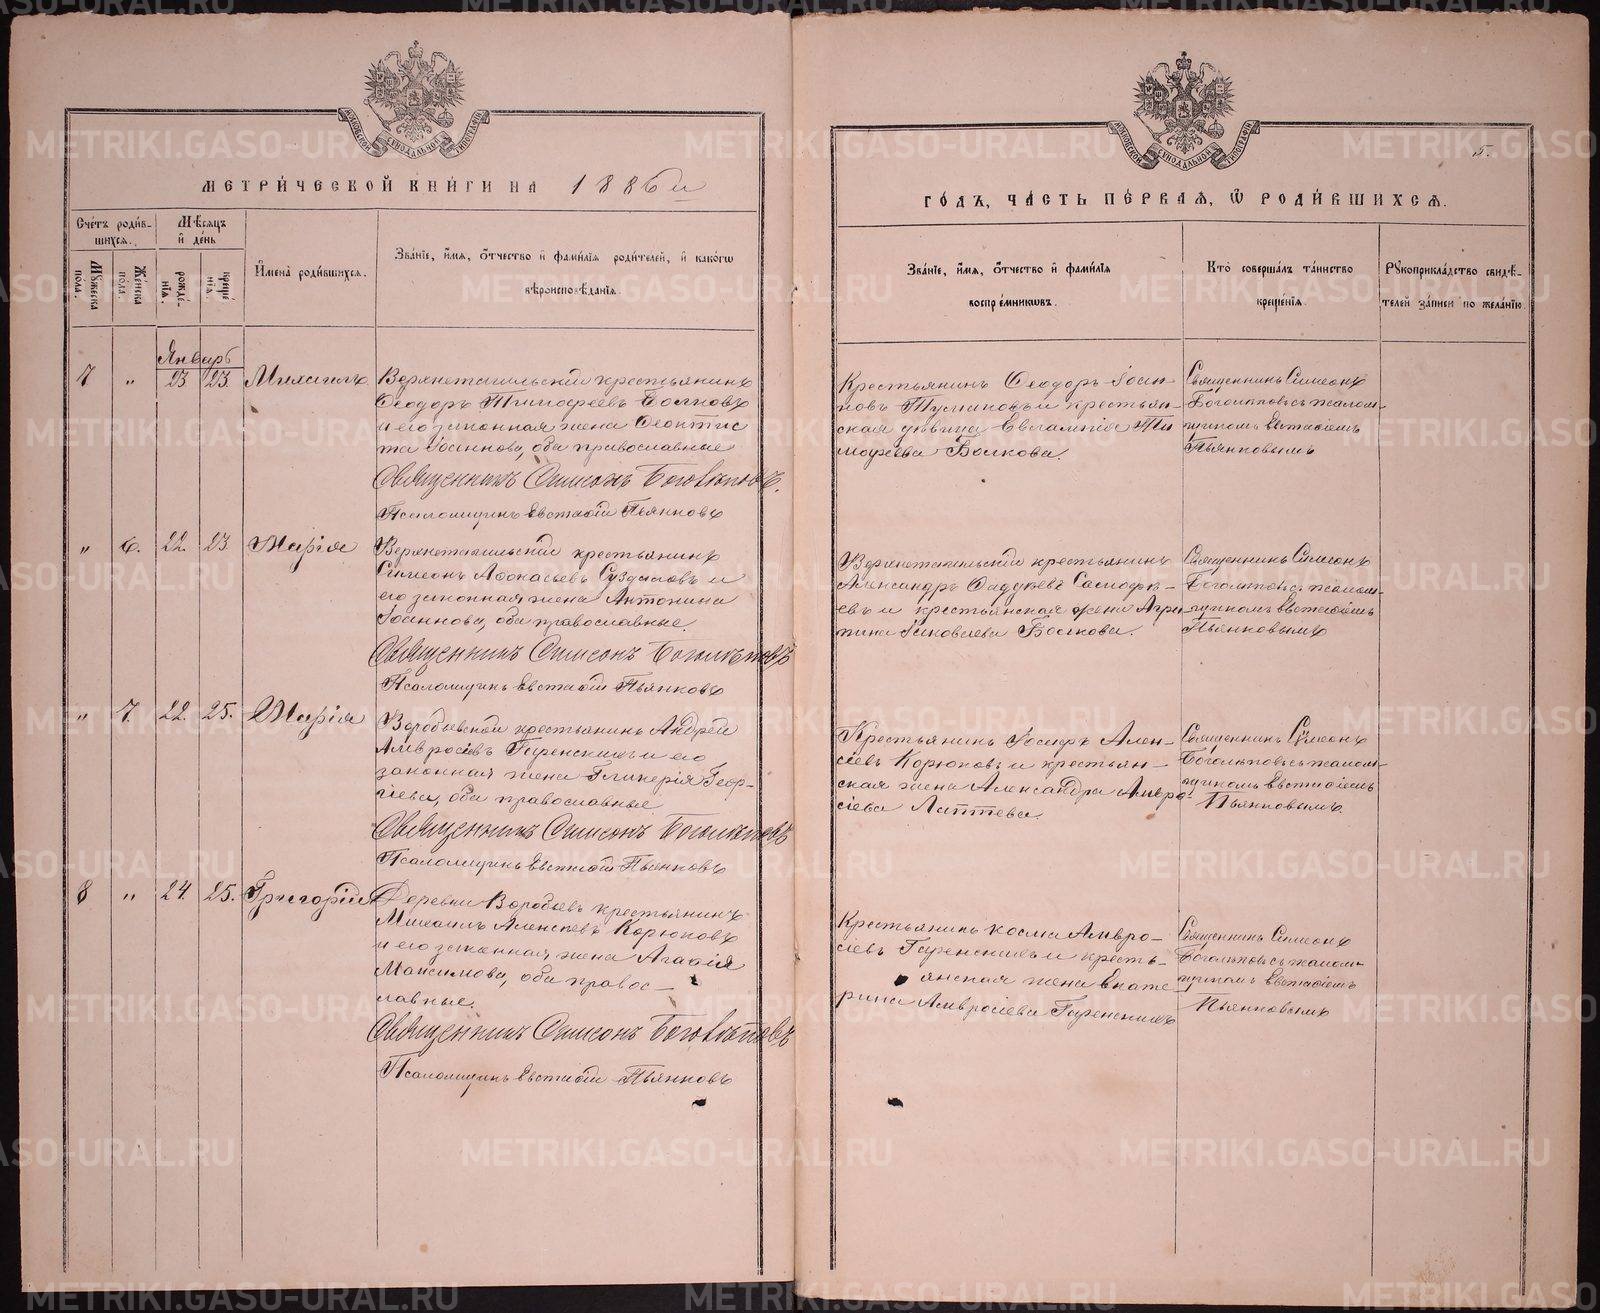 МОСКОВСКОЙ СѴНОДАЛЬНОЙ ТИПОГРАФІИ
МЕТРИ́ЧЕСКОЙ КНИ́ГИ НА 1886 й
Сче́тъ роди́в-
шихсѧ.
Мѣ́сѧцъ
и҆ де́нь
Мꙋ́жеска
по́ла.
Же́нска
по́ла.
рожде́-
нїѧ.
креще́-
нїѧ.
И҆мена̀ роди́вшихсѧ.
Зва́нїе, и҆́мѧ, ѻ҆́тчество и҆ фамилїѧ роди́телей, и҆ како́гѡ
вѣроисповѣ́данїѧ.
Январь
7 " 23 23. Михаилъ
Верхнетагильскій крестьянинъ
Ѳеодоръ Тимоѳеевъ Болковъ
и его законная жена Ѳеоктис
та Іоаннова, оба православные
Священникъ Симеонъ Боголѣповъ.
Псаломщикъ Евстаѳій Пьянковъ
" 6. 22. 23 Марія
Верхнетагильскій крестьянинъ
Симеонъ Аѳонасьевъ Суздаловъ и
его законная жена Антонина
Іоаннова, оба православные.
Священникъ Симеонъ Боголѣповъ
Псаломщикъ Евстаѳій Пьянковъ
" 7. 22. 25. Марія
Воробьевской крестьянинъ Андрей
Амвросіевъ Гаренскихъ и его
законная жена Гликерія Геор-
гіева, оба православные
Священникъ Симеонъ Боголѣповъ
Псаломщикъ Евстаѳій Пьянковъ
8 " 24. 25. Григорій
Деревни Воробьевъ крестьянинъ
Михаилъ Алексѣевъ Корюковъ
и его законная жена Агаѳія
Максимова, оба правос-
лавные.
Священникъ Симеонъ Боголѣповъ
Псаломщикъ Евстаѳій Пьянковъ
МОСКОВСКОЙ СѴНОДАЛЬНОЙ ТИПОГРАФІИ
5.
ГО́ДЪ, ЧА́СТЬ ПЕ́РВАѦ, Ѽ РОДИ́ВШИХСѦ.
Зва́нїе, и҆́мѧ, ѻ҆́тчество и҆ фами́лїѧ
воспрїе́мникѡвъ.
Кто̀ соверша́лъ та́инство
креще́нїѧ.
Рꙋкоприкла́дство свидѣ́-
телей за́писи по жела́нїю.
Крестьянинъ Ѳеодоръ Іоан
новъ Тумановъ и крестьян-
ская дѣвица Евлампія Ти
моѳеева Болкова.
Священникъ Симеонъ
Боголѣповъ съ псалом-
щикомъ Евстаѳіемъ
Пьянковымъ
Верхнетагильскій крестьянинъ
Александръ Саддуѳевъ
евъ и крестьянская жена Агри
пина Іаковлева Болкова.
Священникъ Симеонъ
Боголѣповъ съ псалом-
щикомъ Евстаѳіемъ
Пьянковымъ
Крестьянинъ Іосифъ Алек-
сіевъ Корюковъ и крестьян-
ская жена Александра Амвро-
сіева Лаптева.
Священникъ Симеонъ
Боголѣповъ съ псалом-
щикомъ Евстаѳіемъ
Пьянковымъ.
Крестьянинъ Косма Амвро-
сіевъ Гаренскихъ и кресть-
янская жена Екате
рина Амвросіева Гаренскихъ
Священникъ Симеонъ
Боголѣповъ съ псалом-
щикомъ Евстаѳіемъ
Пьянковымъ
METRIKI.GASO-URAL.RU